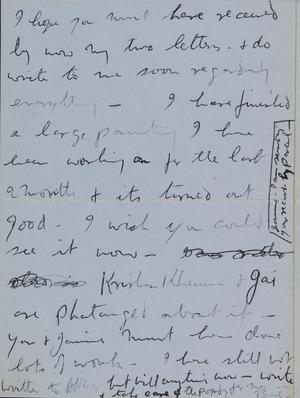 I hope you must have received
by now my two letters - & do
write to me soon regarding
everything - I have finished
a large painting I have
been working on for the last
2 months & its turned out
good - I wish you could
see it now -
Krishen Khanna & Gai
are photanged about it -
you & Jannie must have done
lots of work - I have still not
written to but will anytime now - write
& take care of the papers for me